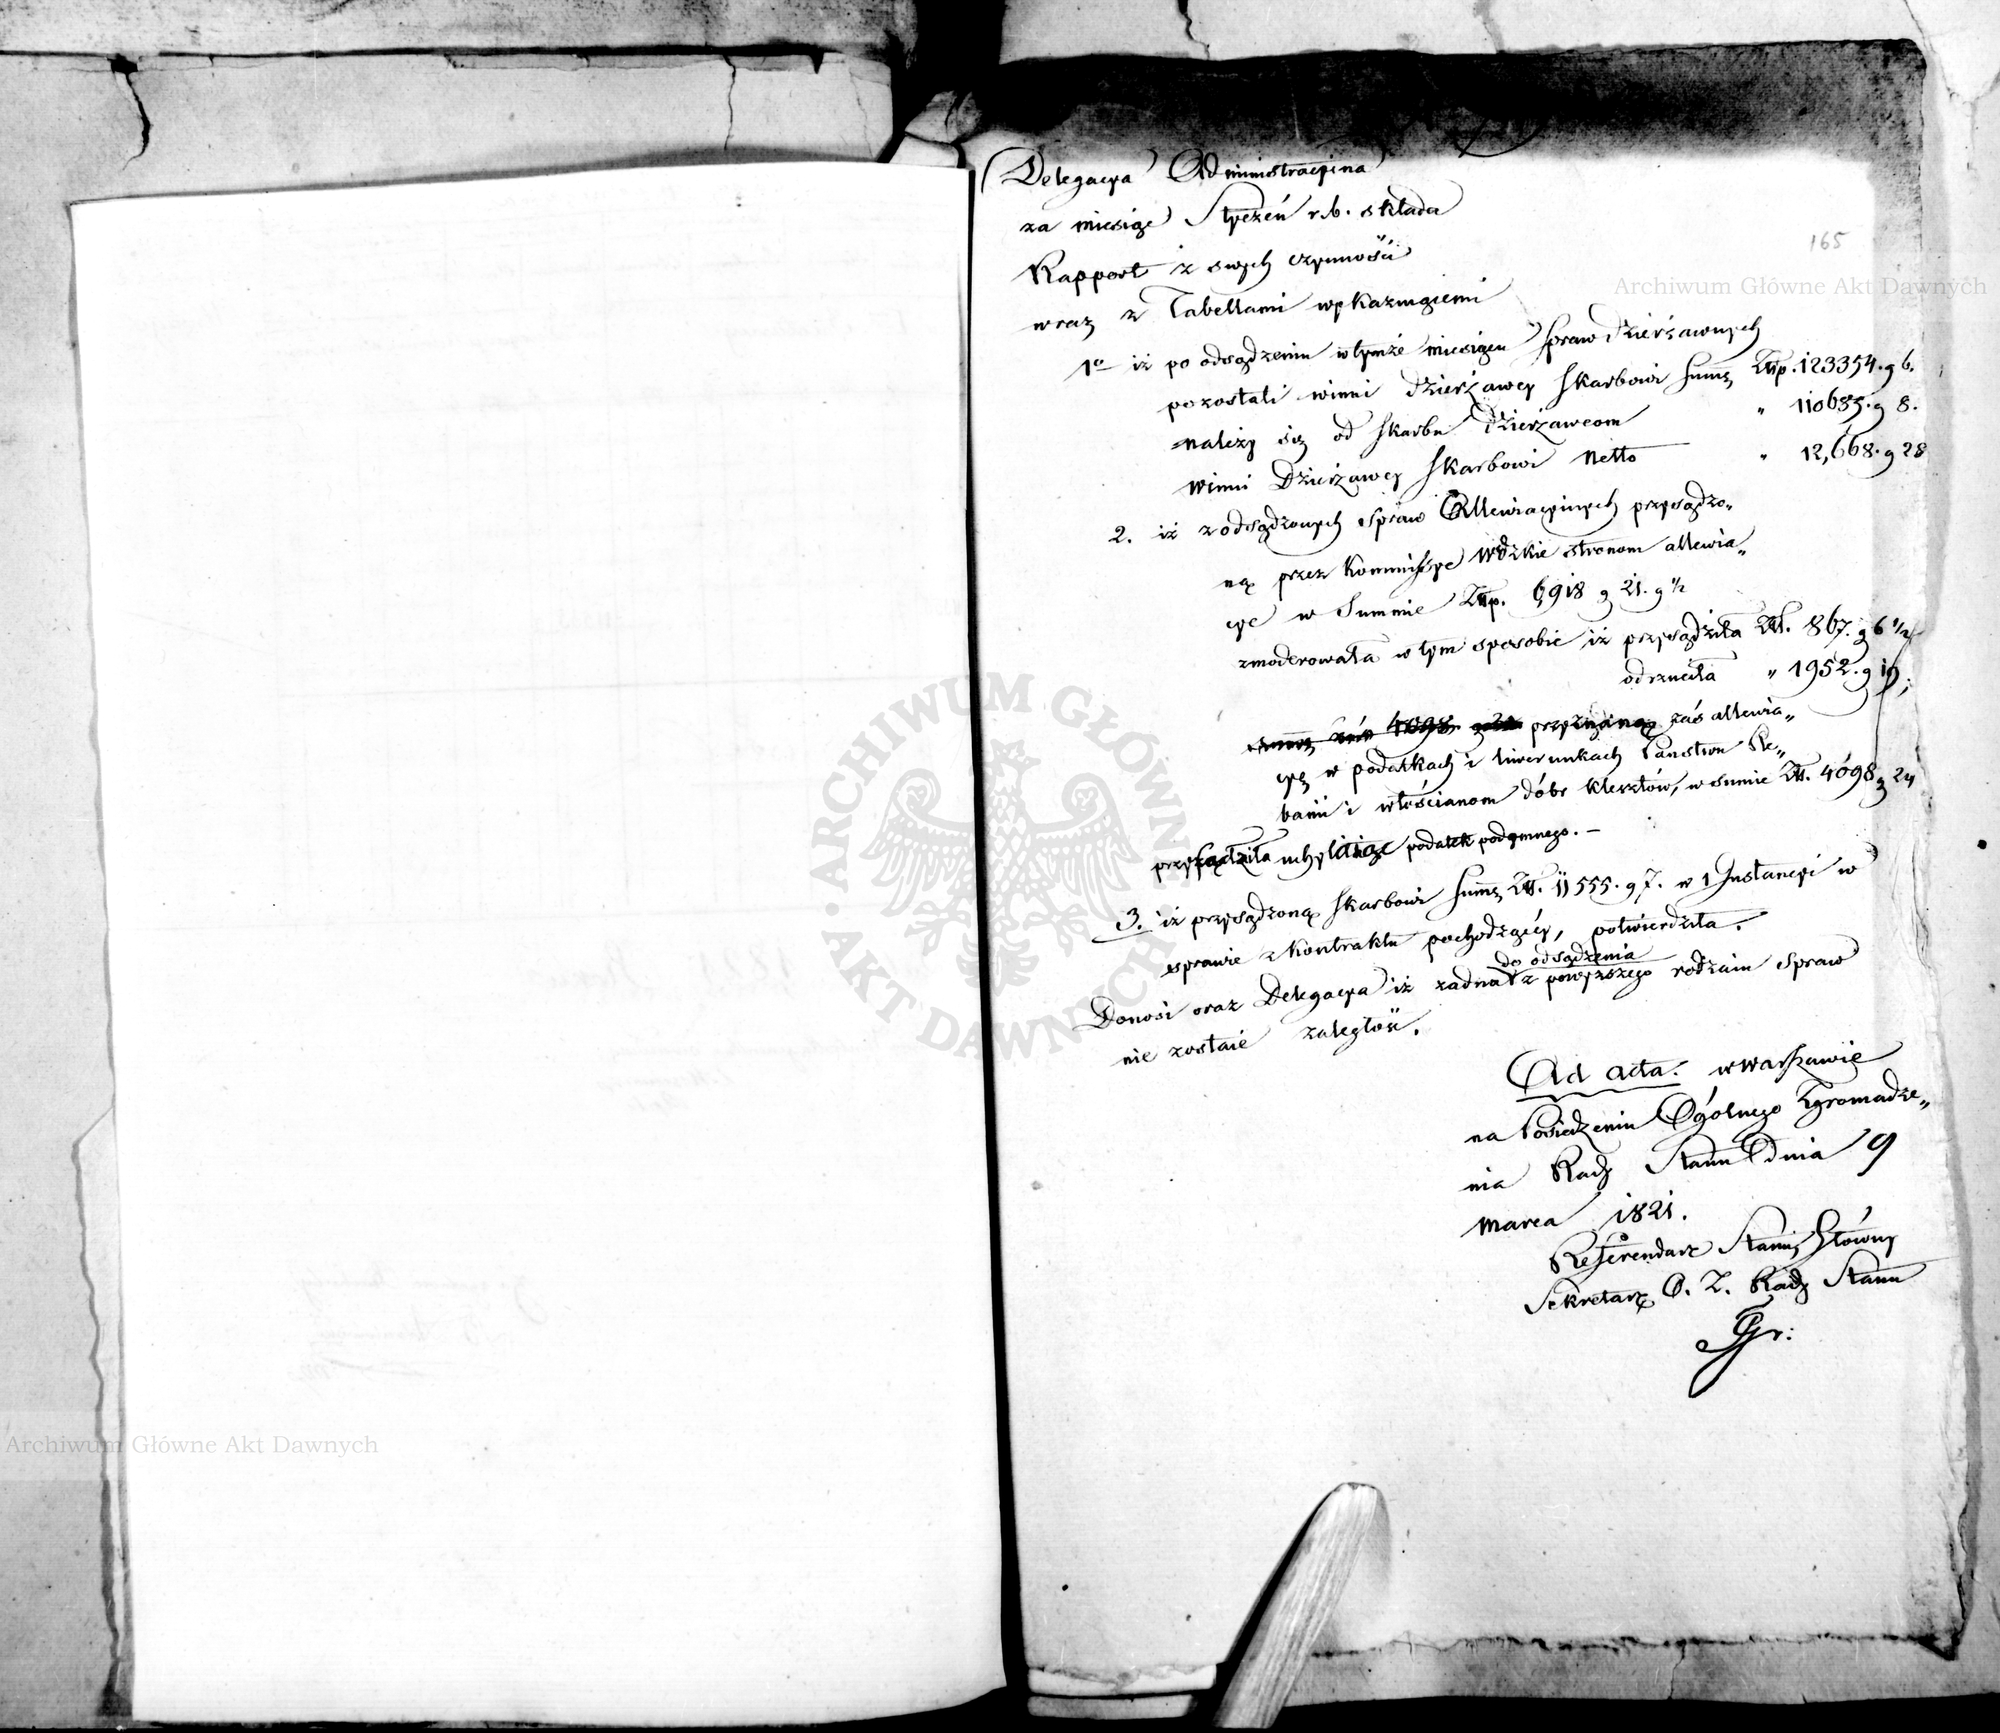 165
Delegacya Administracyina
za miesiąc Styczeń r.b. składa
Rapport z swych czynności
wraz z Tabellami wykazuiącemi
1o iż po odsądzeniu w tymże miesiącu spraw dzierżawnych
pozostali winni dzierżawcy skarbowi summę Złp. 123354. g 6.
należy się od skarbu dzierżawcom " 110685. g 8.
winni Dzierżawcy skarbowi netto " 12,668. g 28
2. iż z odsądzonych spraw Allewiacyinych przysądzo„
ną przez Kommissye Wdzkie stronom allewia„
cye w Summie Złp. 6918 g 21. g 1/2
zmoderowała w tym sposobie iż przysądziła Zł. 867. g 6 1/2
odrzuciła " 1952. g 19;
summę 4098 przyznaną zaś allewia„
cyę w podatkach i liwerunkach Państwu Re„
bani i włościanom dóbr Kleszłów, w sumie Zł. 4098 g 24
przysądziła uchylaiąc podatek podymnego. —
3. iż przysądzoną skarbowi summę Zł. 11555. g 7. w 1 Instancyi w
sprawie z Kontraktu pochodzącéy, potwierdziła.
do odsądzenia
Donosi oraz Delegacya iż żadna z powyższego rodzaiu spraw
nie zostaie zaległość.
Ad acta. w Warszawie
na Posiedzeniu Ogólnego Zgromadze„
nia Rady Stanu dnia 9
Marca 1821.
Referendarz Stanu, Główny
Sekretarz O. Z. Rady Stanu
Archiwum Główne Akt Dawnych
Archiwum Główne Akt Dawnych
ARCHIWUM GŁÓWNE · AKT DAWNYCH ·